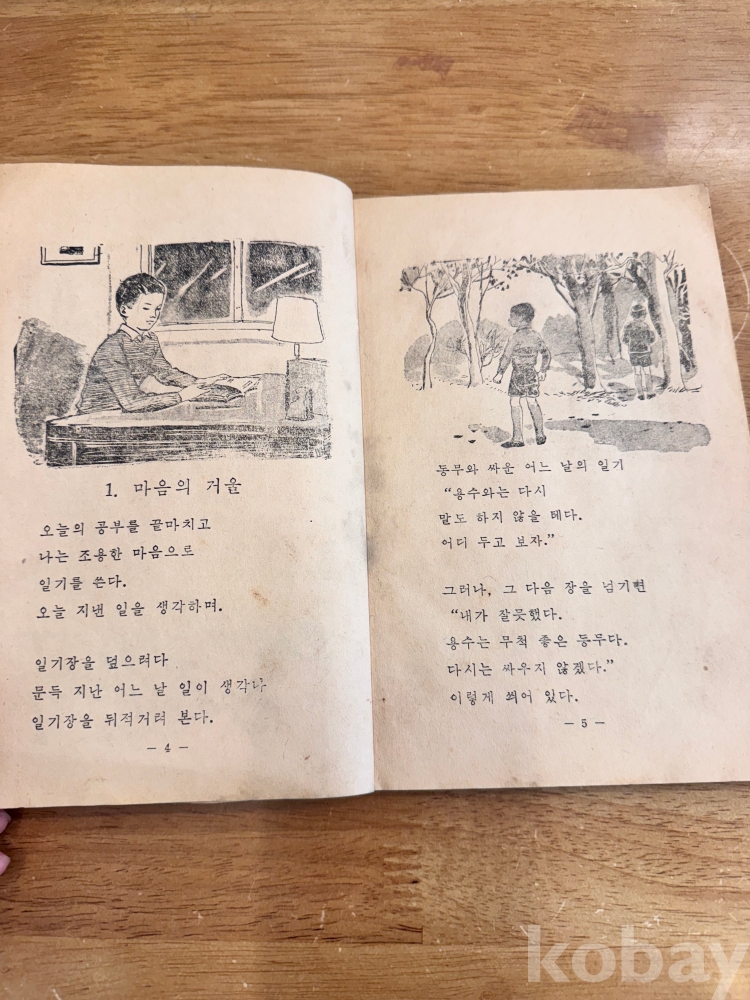 1. 마음의 거울
오늘의 공부를 끝마치고
나는 조용한 마음으로
일기를 쓴다.
오늘 지낸 일을 생각하며.
일기장을 덮으려다
문득 지난 어느 날 일이 생각나
일기장을 뒤적거려 본다.
— 4 —
동무와 싸운 어느 날의 일기
“용수와는 다시
말도 하지 않을 테다.
어디 두고 보자.”
그러나, 그 다음 장을 넘기면
“내가 잘못했다.
용수는 무척 좋은 동무다.
다시는 싸우지 않겠다.”
이렇게 씌어 있다.
— 5 —
kobay